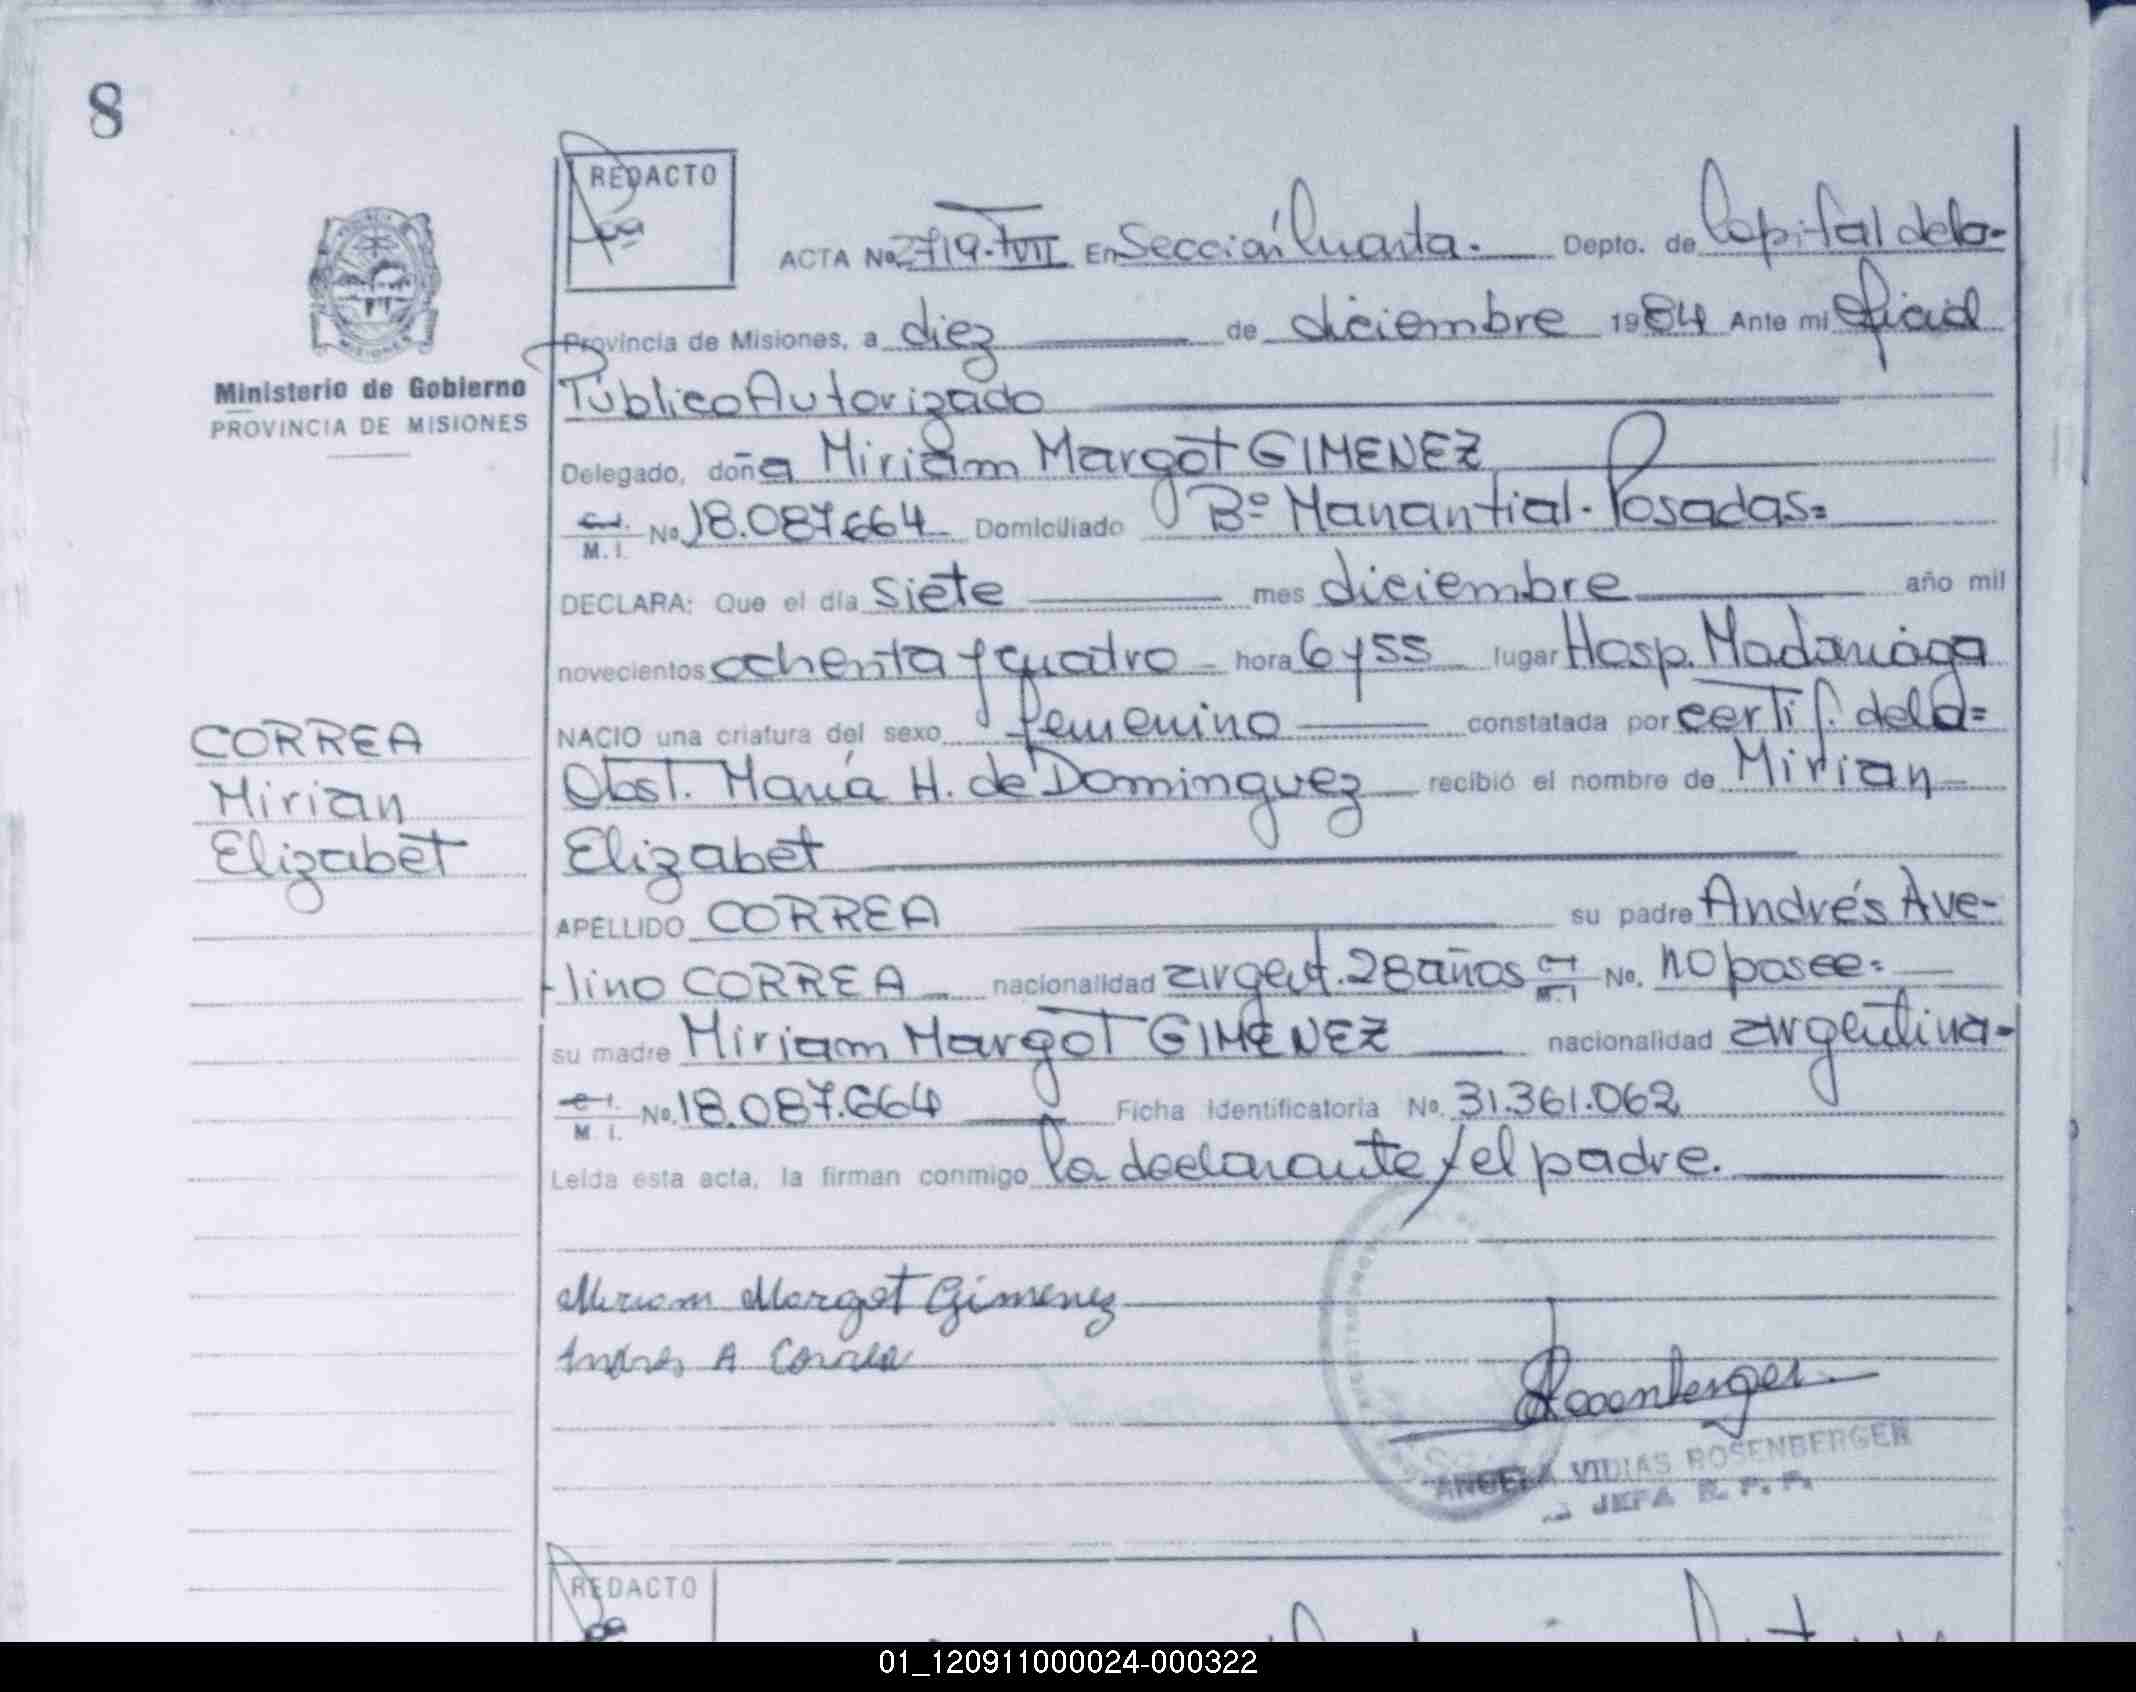 8
REDACTO
ACTA No 2719-TVII En Sección Cuarta. Depto. de Capital de la-
Provincia de Misiones, a diez de diciembre 1984 Ante mi oficial
Ministerio de Gobierno
PROVINCIA DE MISIONES
Público Autorizado
Delegado, doña Miriam Margot GIMENEZ
C.I. M.I. No 18.087.664 Domiciliado Bº Manantial. Posadas=
DECLARA: Que el día siete mes diciembre año mil
novecientos ochenta y cuatro hora 6 y 55 lugar Hosp. Madariaga
CORREA
Mirian
Elizabet
NACIO una criatura del sexo femenino constatada por certif. de la=
Obst. María H. de Dominguez recibió el nombre de Mirian
Elizabet
APELLIDO CORREA su padre Andrés Ave-
-lino CORREA nacionalidad argent. 28 años C.I. M.I No. no posee=
su madre Miriam Margot GIMENEZ nacionalidad argentina-
C.I. M.I. No. 18.087.664 Ficha identificatoria No. 31.361.062
Leida esta acta, la firman conmigo la declarante y el padre.
Miriam Margot Gimenez
Andres A Correa
Rosenberger
ANGELA VIDIAS ROSENBERGER
JEFA R. P. P.
REDACTO
01_120911000024-000322